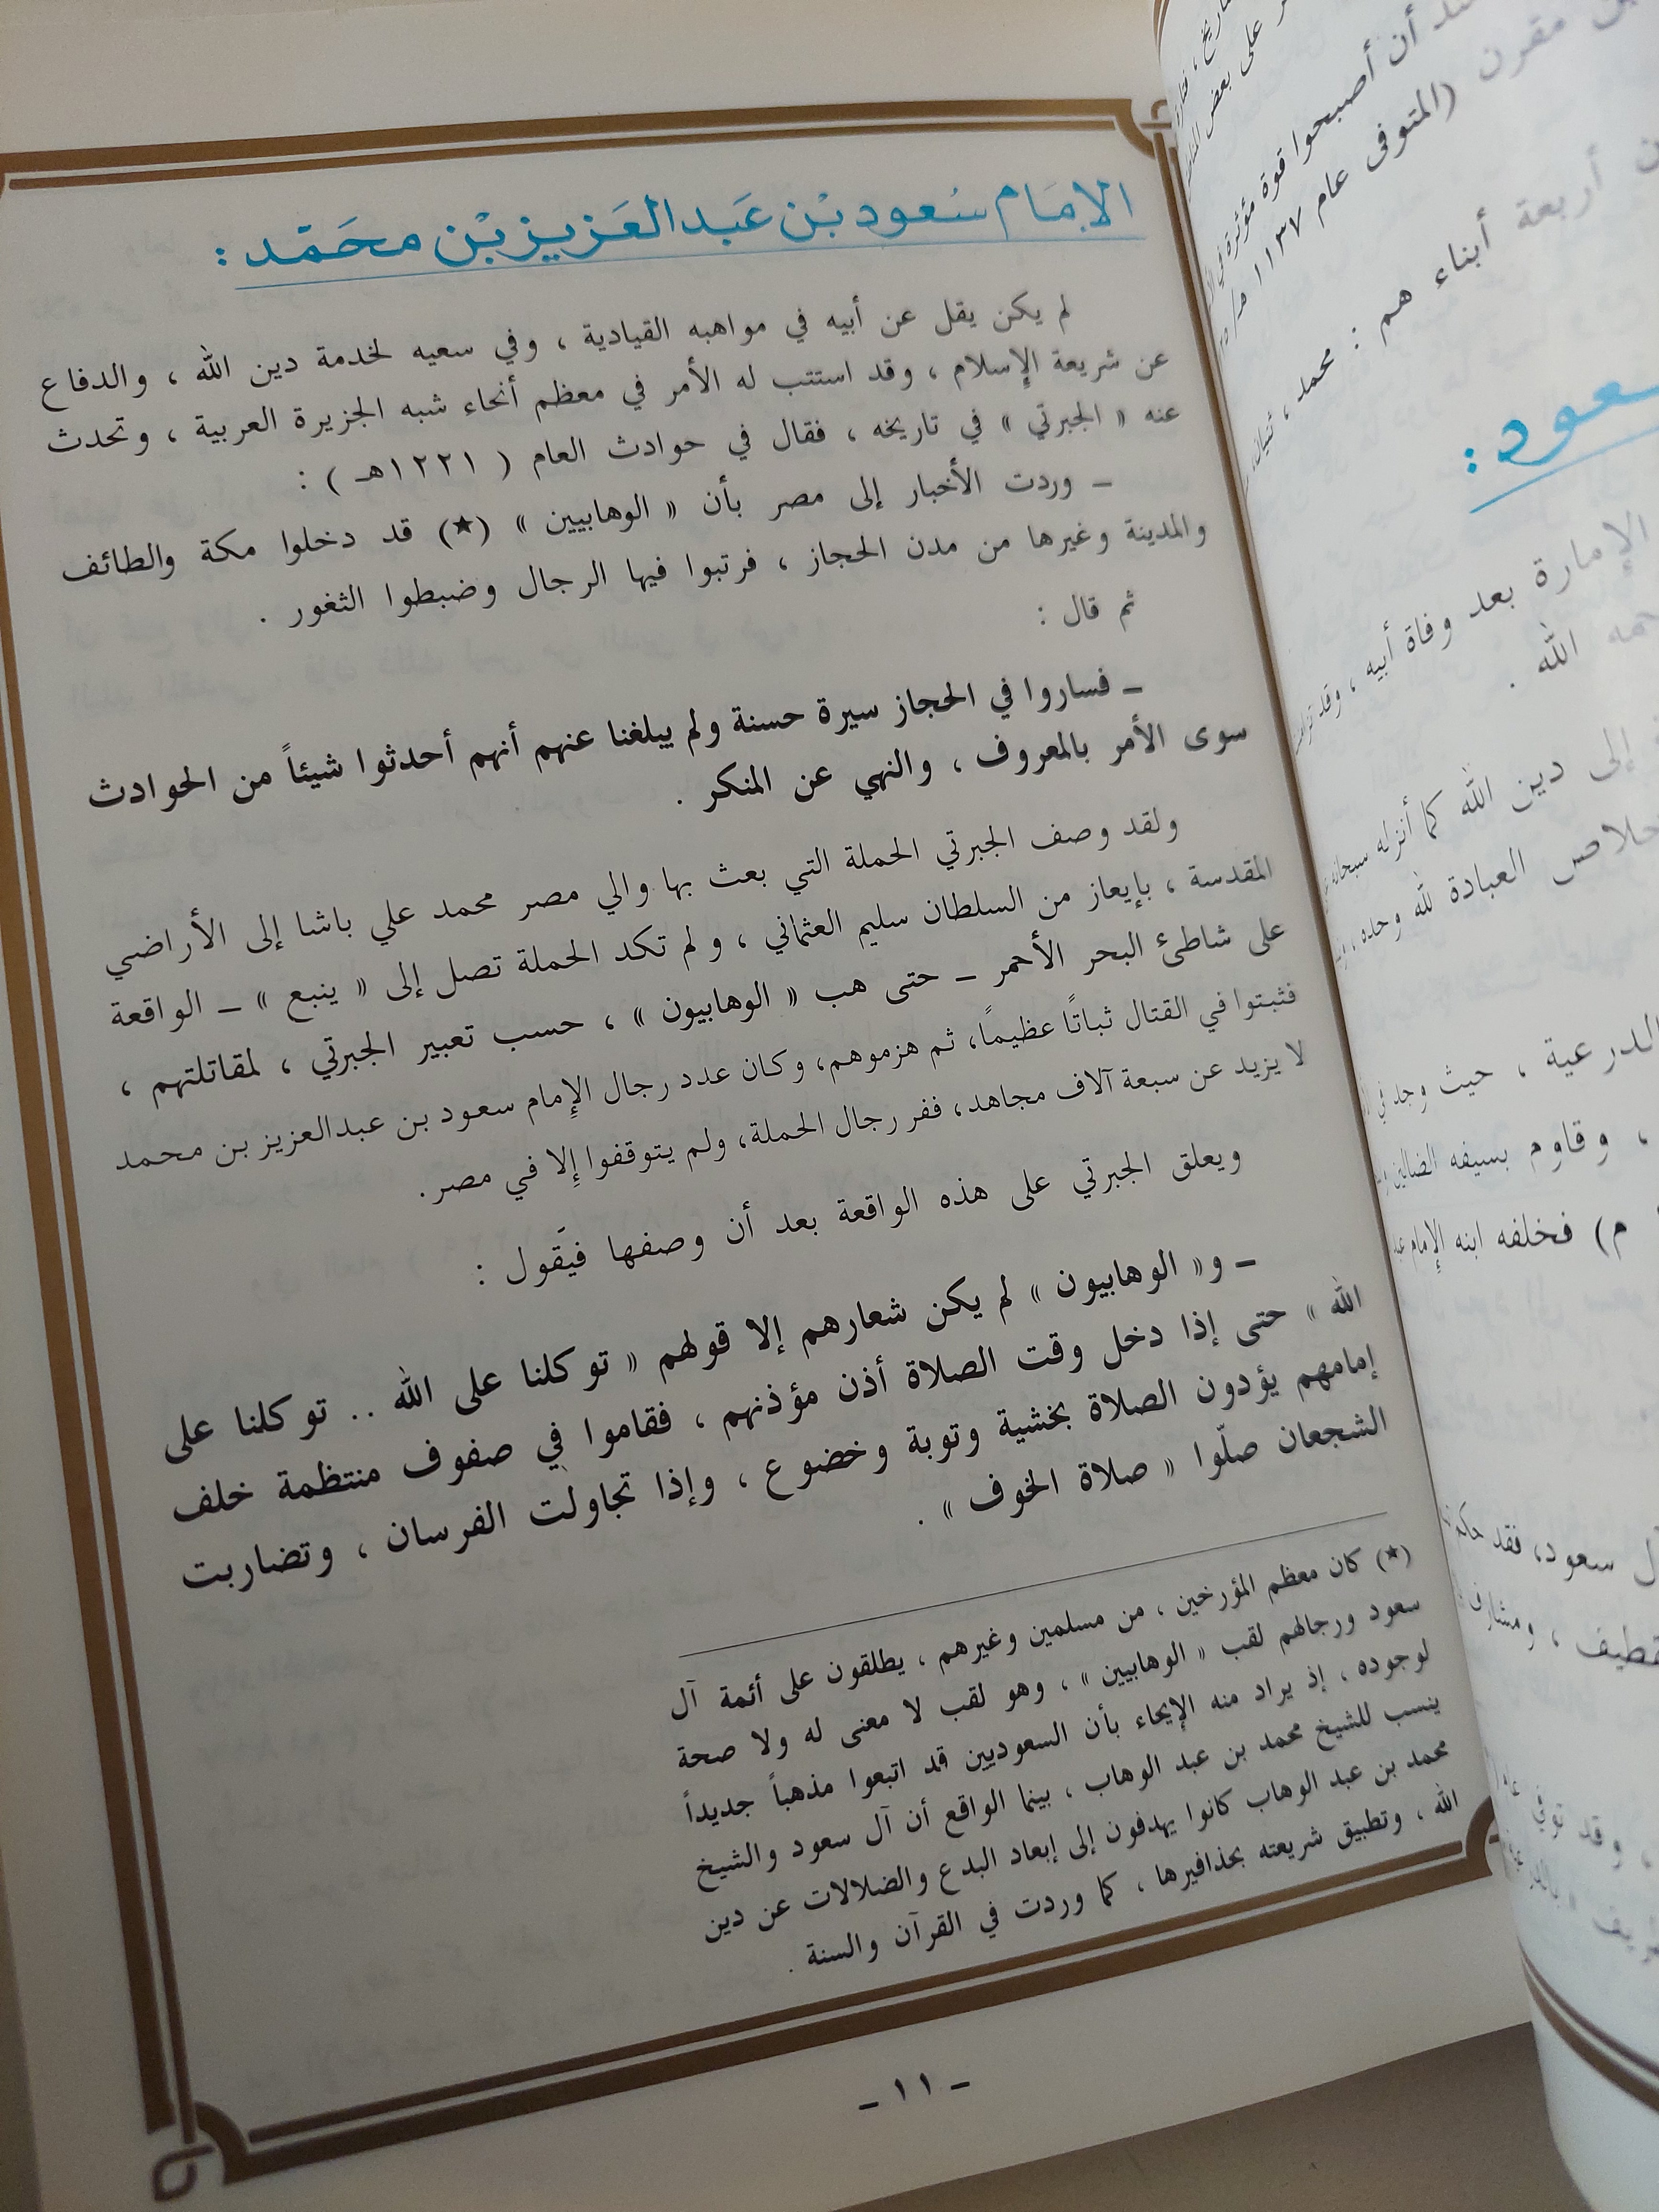 الإمَام سُعود بْن عَبد العَزيز بْن محَمّد :
لم يكن يقل عن أبيه في مواهبه القيادية ، وفي سعيه لخدمة دين الله ، والدفاع
عن شريعة الإسلام ، وقد استتب له الأمر في معظم أنحاء شبه الجزيرة العربية ، وتحدث
عنه « الجبرتي » في تاريخه ، فقال في حوادث العام ( ١٢٢١هـ ) :
ـ وردت الأخبار إلى مصر بأن « الوهابيين » (★) قد دخلوا مكة والطائف
والمدينة وغيرها من مدن الحجاز ، فرتبوا فيها الرجال وضبطوا الثغور .
ثم قال :
ـ فساروا في الحجاز سيرة حسنة ولم يبلغنا عنهم أنهم أحدثوا شيئاً من الحوادث
سوى الأمر بالمعروف ، والنهي عن المنكر .
ولقد وصف الجبرتي الحملة التي بعث بها والي مصر محمد علي باشا إلى الأراضي
المقدسة ، بإيعاز من السلطان سليم العثماني ، ولم تكد الحملة تصل إلى « ينبع » ـ الواقعة
على شاطئ البحر الأحمر ـ حتى هب « الوهابيون » ، حسب تعبير الجبرتي ، لمقاتلتهم ،
فثبتوا في القتال ثباتًا عظيمًا، ثم هزموهم، وكان عدد رجال الإمام سعود بن عبدالعزيز بن محمد
لا يزيد عن سبعة آلاف مجاهد، ففر رجال الحملة، ولم يتوقفوا إلا في مصر.
ويعلق الجبرتي على هذه الواقعة بعد أن وصفها فيَقول :
ـ و« الوهابيون » لم يكن شعارهم إلا قولهم « توكلنا على الله .. توكلنا على
الله » حتى إذا دخل وقت الصلاة أذن مؤذنهم ، فقاموا في صفوف منتظمة خلف
إمامهم يؤدون الصلاة بخشية وتوبة وخضوع ، وإذا تجاولت الفرسان ، وتضاربت
الشجعان صلّوا « صلاة الخوف » .
(★) كان معظم المؤرخين ، من مسلمين وغيرهم ، يطلقون على أئمة آل
سعود ورجالهم لقب « الوهابيين » ، وهو لقب لا معنى له ولا صحة
لوجوده ، إذ يراد منه الإيحاء بأن السعوديين قد اتبعوا مذهباً جديداً
ينسب للشيخ محمد بن عبد الوهاب ، بينما الواقع أن آل سعود والشيخ
محمد بن عبد الوهاب كانوا يهدفون إلى إبعاد البدع والضلالات عن دين
الله ، وتطبيق شريعته بحذافيرها ، كما وردت في القرآن والسنة .
ـ ١١ ـ
على بعض
أن أصبحوا قوة مؤثرة في
مقرن (المتوفى عام ١١٣٧ هـ/
أربعة أبناء هم : محمد ،
سعود :
الإمارة بعد وفاة أبيه ، وقد
الله .
إلى دين الله كما أنزله سبحانه
العبادة لله وحده ،
الدرعية ، حيث وجد في
، وقاوم بسيفه الضالين
م) فخلفه ابنه الإمام
سعود، فقد حكم
، ومشارف
، وقد توفي